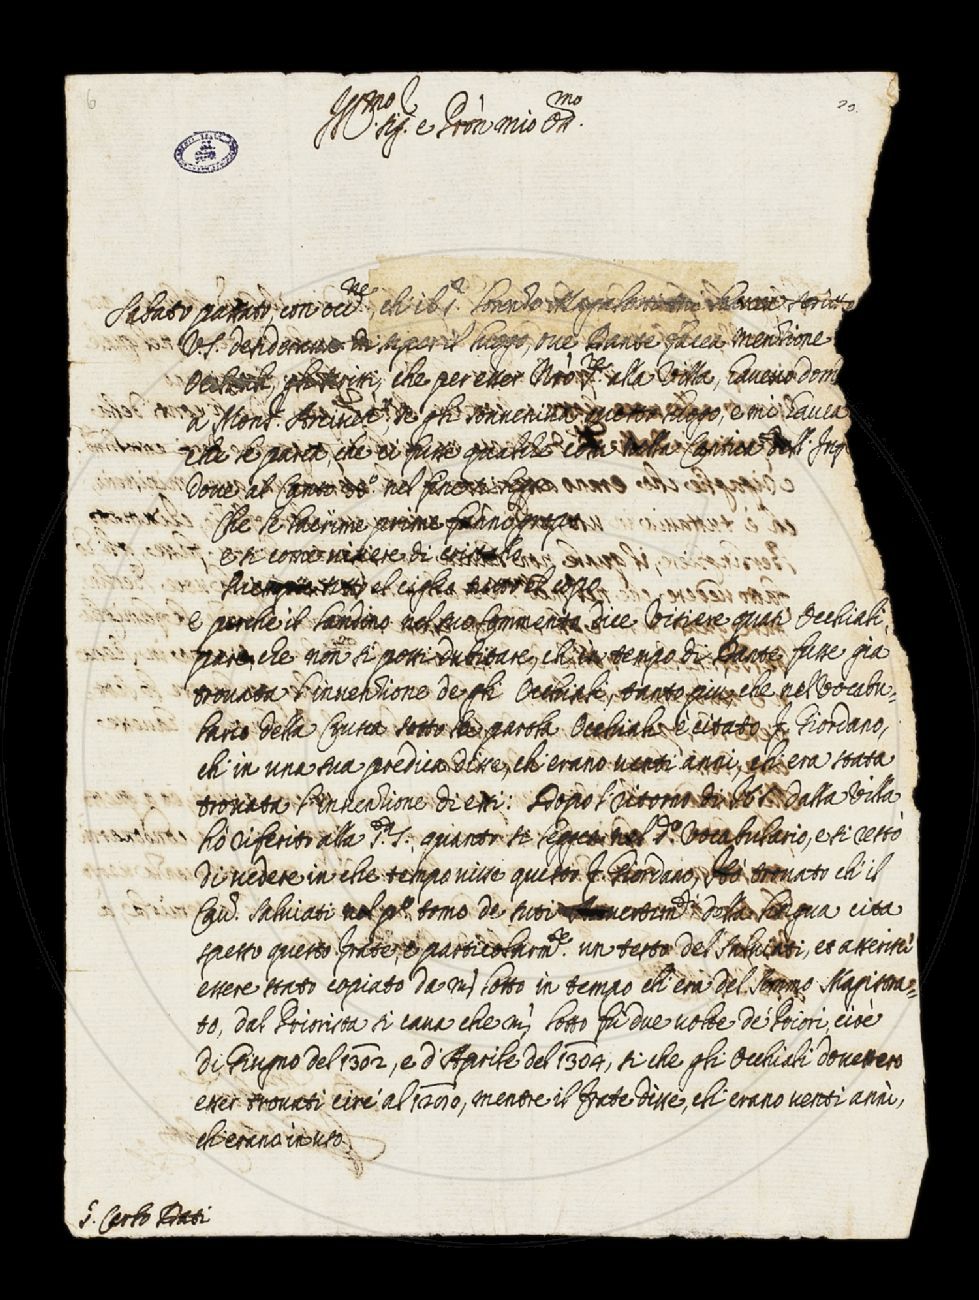 6
20.
Ill.mo
Sig.r e Pròn mio Oss.mo
Sabato passato, con occ.ne, ch' il S.r Lorenzo Magalotti scritto
V.S. desiderare di saper il luogo, ove Dante faccia menzione
Occhiali, che per esser Nrò S.re alla Villa, haveva
a Mons. se gli sovveniva questo luogo, e mi havea
che le parea, che ci fusse qualche cosa nella Cantica dell' Inf
dove al Canto 33.° nel fine
Che le lacrime prime fanno groppo
e si come visiere di cristallo
el ciglio tutto il coppo
e perche il Landino nel suo Commento dice Visiere quasi Occhiali,
pare, che non si possi dubitare, ch' in tempo di Dante fusse già
trovata l'invenzione de gli Occhiali, tanto più, che nel Vocabu-
lario della Crusca sotto la parola Occhiali è citato f. Giordano,
ch' in una sua predica disse, ch' erano venti anni, ch' era stata
trovata l'invenzione di essi: Dopo 'l ritorno di S.S. dalla Villa
hò riferito alla S.S. quanto si legge nel d.° Vocabulario, e si restò
di vedere in che tempo visse questo f. Giordano, hò trovato ch' il
Cav. Salviati nel p.° tomo de suoi Avvertim.ti della Lingua cita
spesso questo frate, e particolarm.te un testo del Salviati, et asserisce
essere stato copiato da un Lotto in tempo ch' era del Sommo Magistra-
to, dal Priorista si cava che un Lotto fù due volte de' Priori, cioè
di Giugno del 1302, e d' Aprile del 1304, si che gli Occhiali dovettero
esser trovati circa al 1280, mentre il frate disse, ch' erano venti anni,
ch' erano in uso
S. Carlo Dati